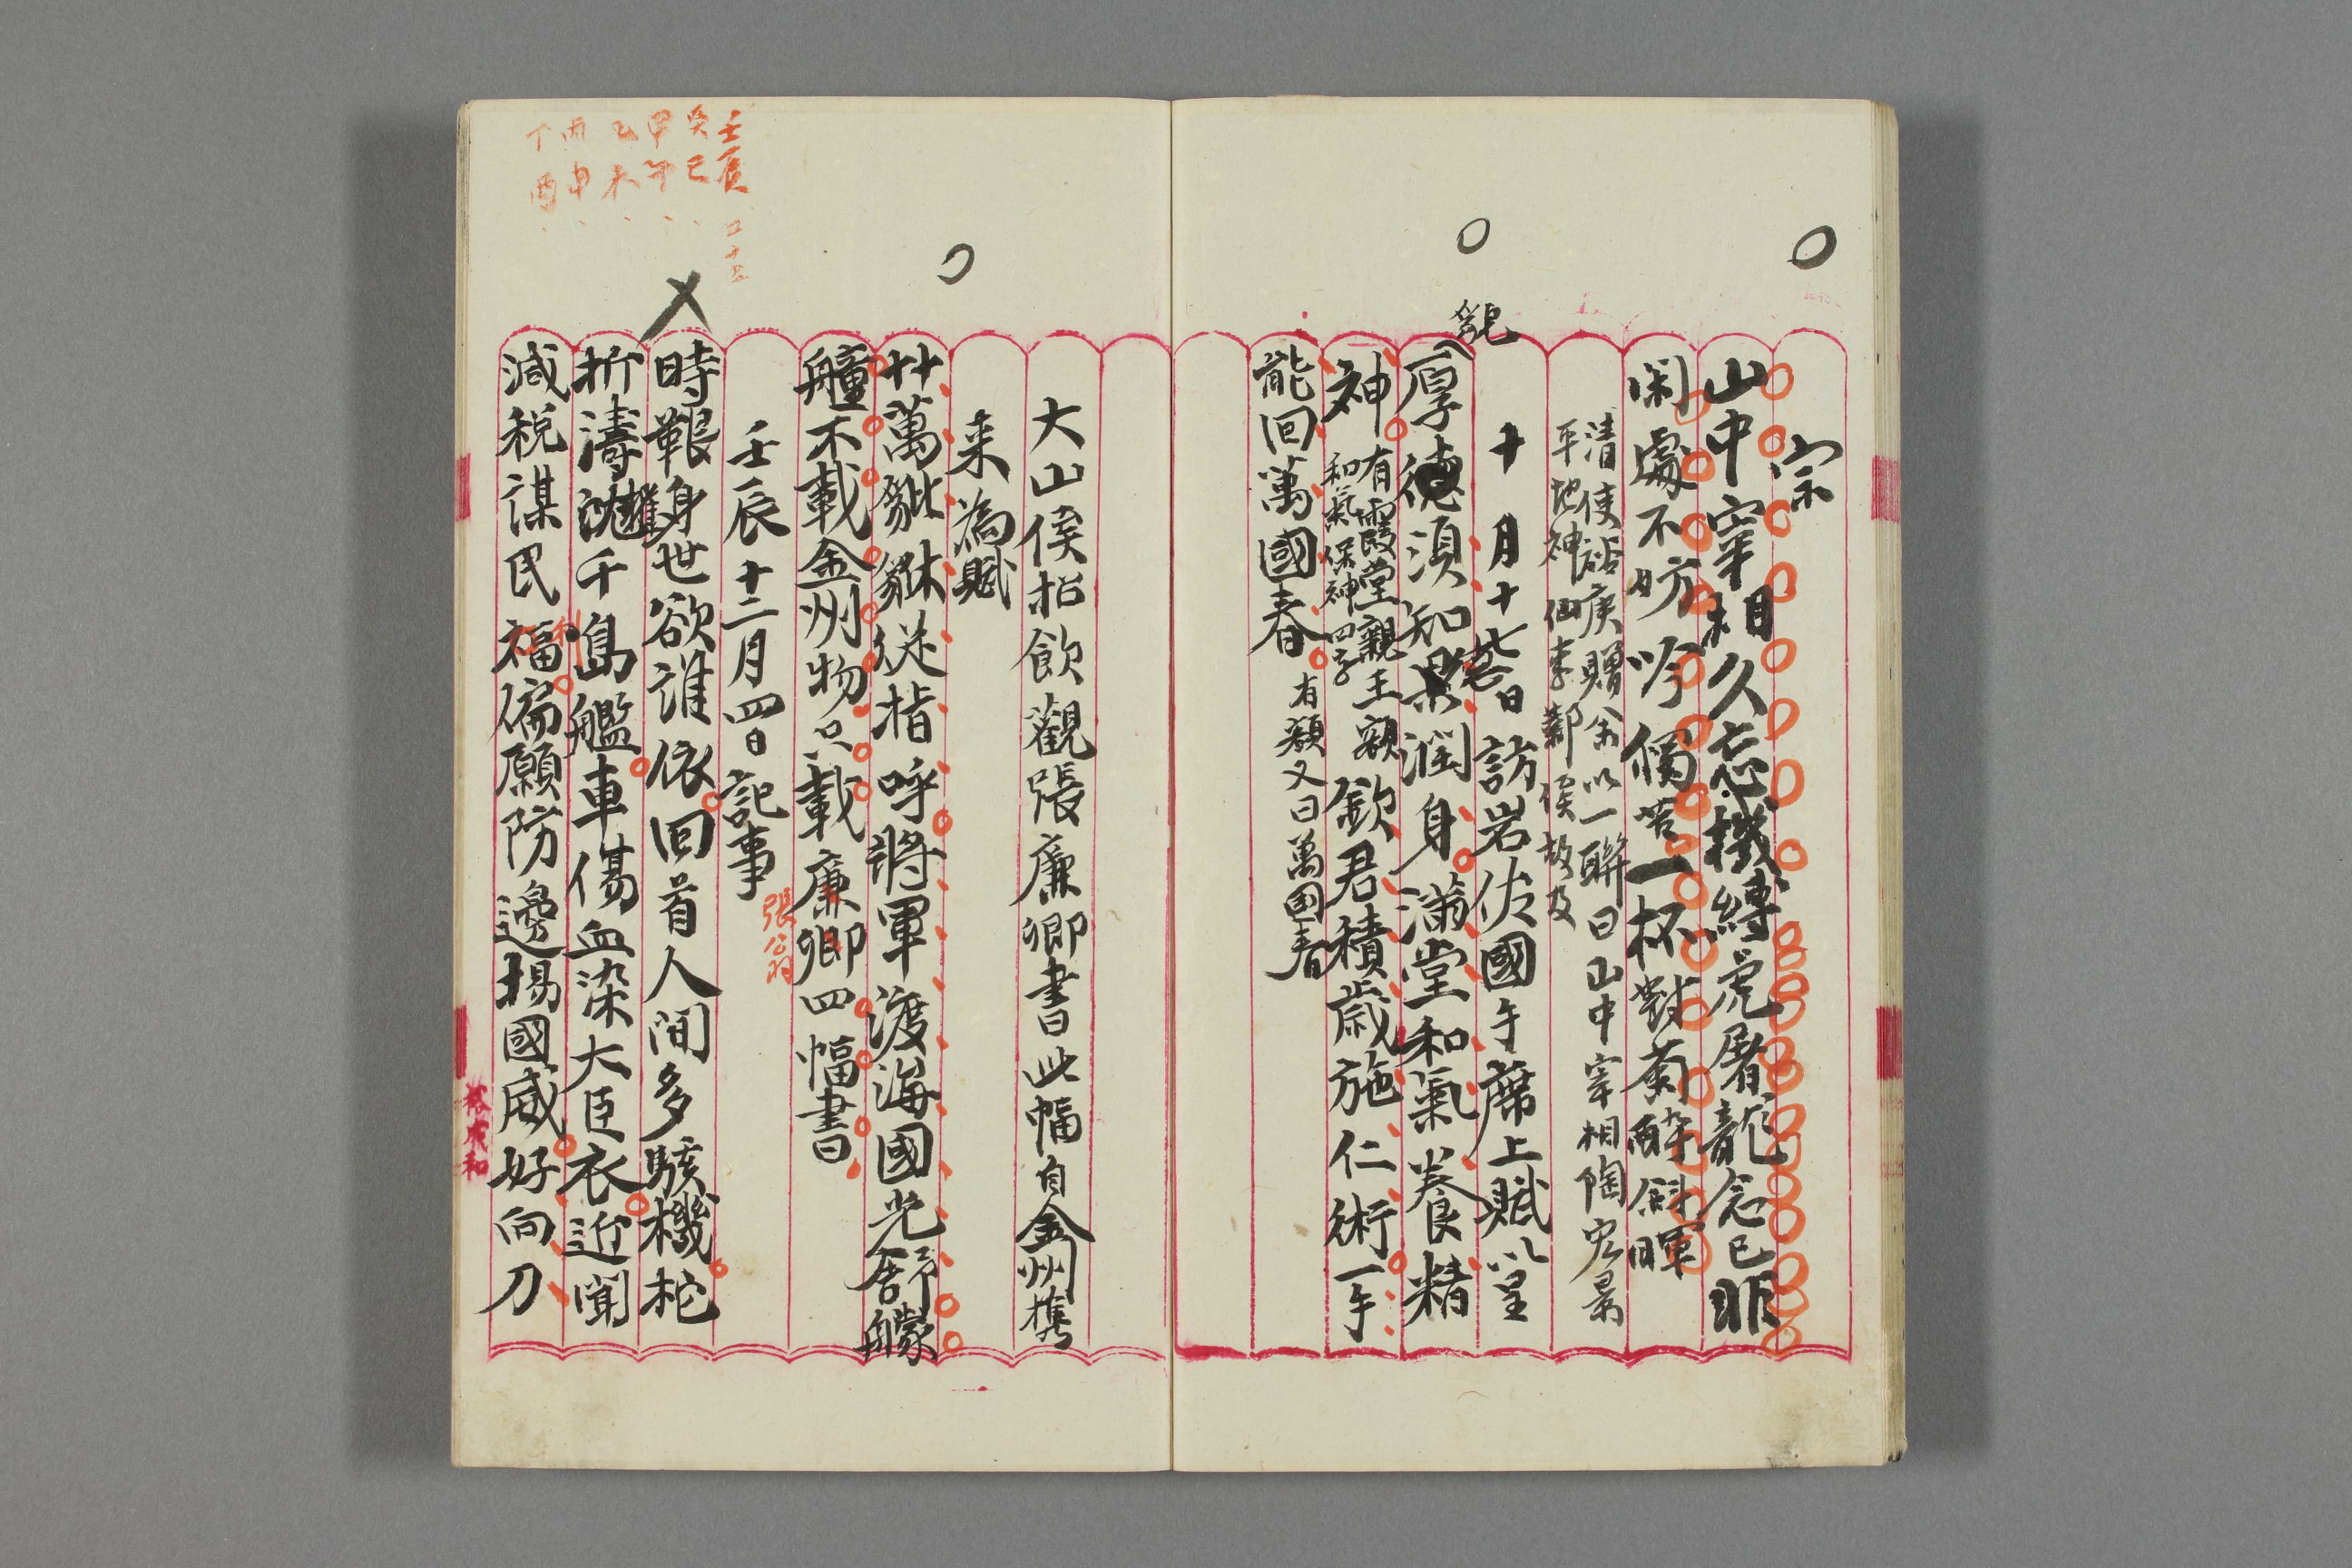 宗
山中宰相久忘機縛虎屠龍念已非
閑處不妨吟獨苦一杯對菊醉斜暉
清使裕庚贈余以一聯曰山中宰相陶宏景
平地神仙李鄴侯故及
十月十
日訪岩佐國手席上賦以呈
貌
厚德須知潤身滿堂和氣養精
神
有霞堂親王額
和氣保神四字
欽君積歲施仁術一手
能回萬國春
有額又曰萬国春
大山侯招飲觀張廉卿書此幅自金州携
来為賦
廿萬豼貅從指呼將軍渡海國光舒艨
艟不載金州物只載廉卿四幅書
壬辰十二月四日記事
張公
時艱身世欲誰依回首人間多駭機柁
折濤千島艦車傷血染大臣衣近聞
減税謀民福偏願防邊揚國威好向刀
壬辰
癸巳
甲午
乙未
丙申
丁酉